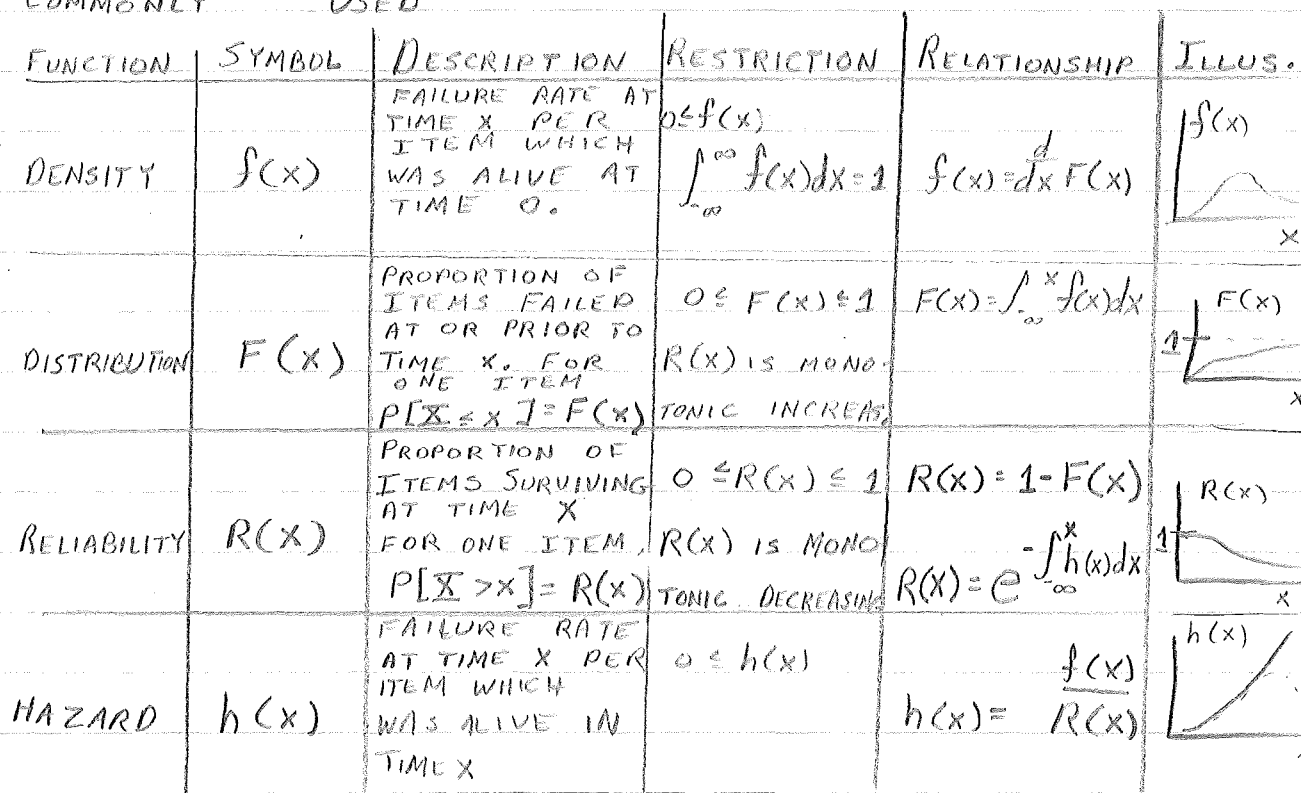 COMMONLY USED
FUNCTION SYMBOL DESCRIPTION RESTRICTION RELATIONSHIP ILLUS.
DENSITY
f(x)
FAILURE RATE AT
TIME X PER
ITEM WHICH
WAS ALIVE AT
TIME 0.
0≤f(x)
∫_{-∞}^{∞} f(x)dx=1
f(x)=d/dx F(x)
f(x)
x
DISTRIBUTION
F(x)
PROPORTION OF
ITEMS FAILED
AT OR PRIOR TO
TIME X. FOR
ONE ITEM
P[X≤x]=F(x)
0≤F(x)≤1
R(x) IS MONO-
TONIC INCREAS.
F(x)=∫_{-∞}^{x} f(x)dx
F(x)
1
x
RELIABILITY
R(x)
PROPORTION OF
ITEMS SURVIVING
AT TIME X
FOR ONE ITEM,
P[X>x]=R(x)
0≤R(x)≤1
R(x) IS MONO
TONIC DECREASING
R(x)=1-F(x)
R(x)=e^{-∫_{-∞}^{x} h(x)dx}
R(x)
1
x
HAZARD
h(x)
FAILURE RATE
AT TIME X PER
ITEM WHICH
WAS ALIVE IN
TIME X
0≤h(x)
h(x)= f(x)/R(x)
h(x)